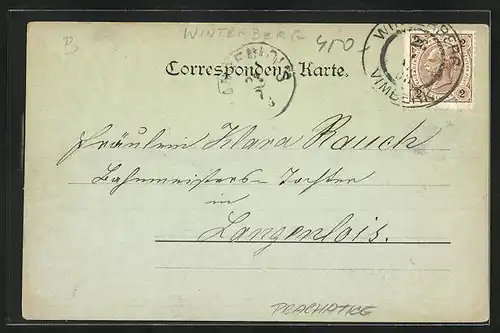 WINTERBERG
450-
WINTERBERG
VIMBERK
2
2
LANGENLOIS
Correspondenz-Karte.
Fräulein Klara Rauch
Bahnmeisters-Tochter
in
Langenlois.
PRACHATICE